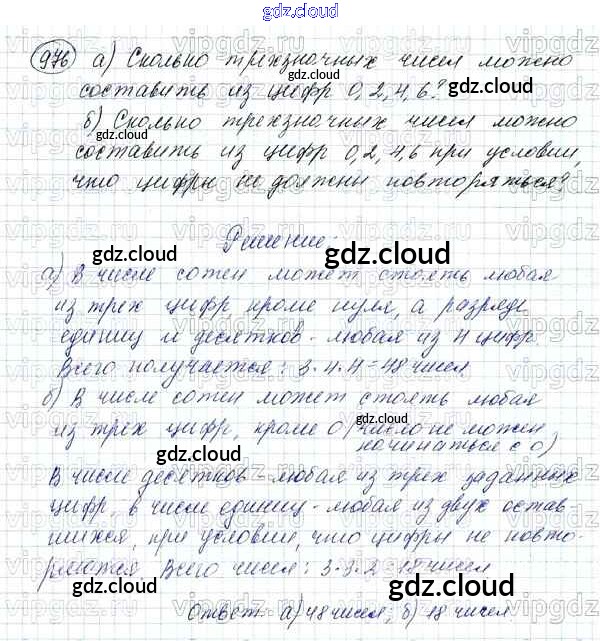 gdz.cloud
976 а) Сколько трехзначных чисел можно
составить из цифр 0,2,4,6?
б) Сколько трехзначных чисел можно
составить из цифр 0,2,4,6 при условии,
что цифры не должны повторяться?
Решение:
а) В числе сотен может стоять любая
из трех цифр, кроме нуля, а разряде
единиц и десятков - любая из 4 цифр.
Всего получается: 3·4·4=48 чисел.
б) В числе сотен может стоять любая
из трех цифр, кроме 0 (число не может
начинаться с 0)
В числе десятков - любая из трех заданных
цифр, в числе единиц - любая из двух остав
шихся, при условии, что цифры не повто-
ряются Всего чисел: 3·3·2=18 чисел
Ответ: а) 48 чисел; б) 18 чисел